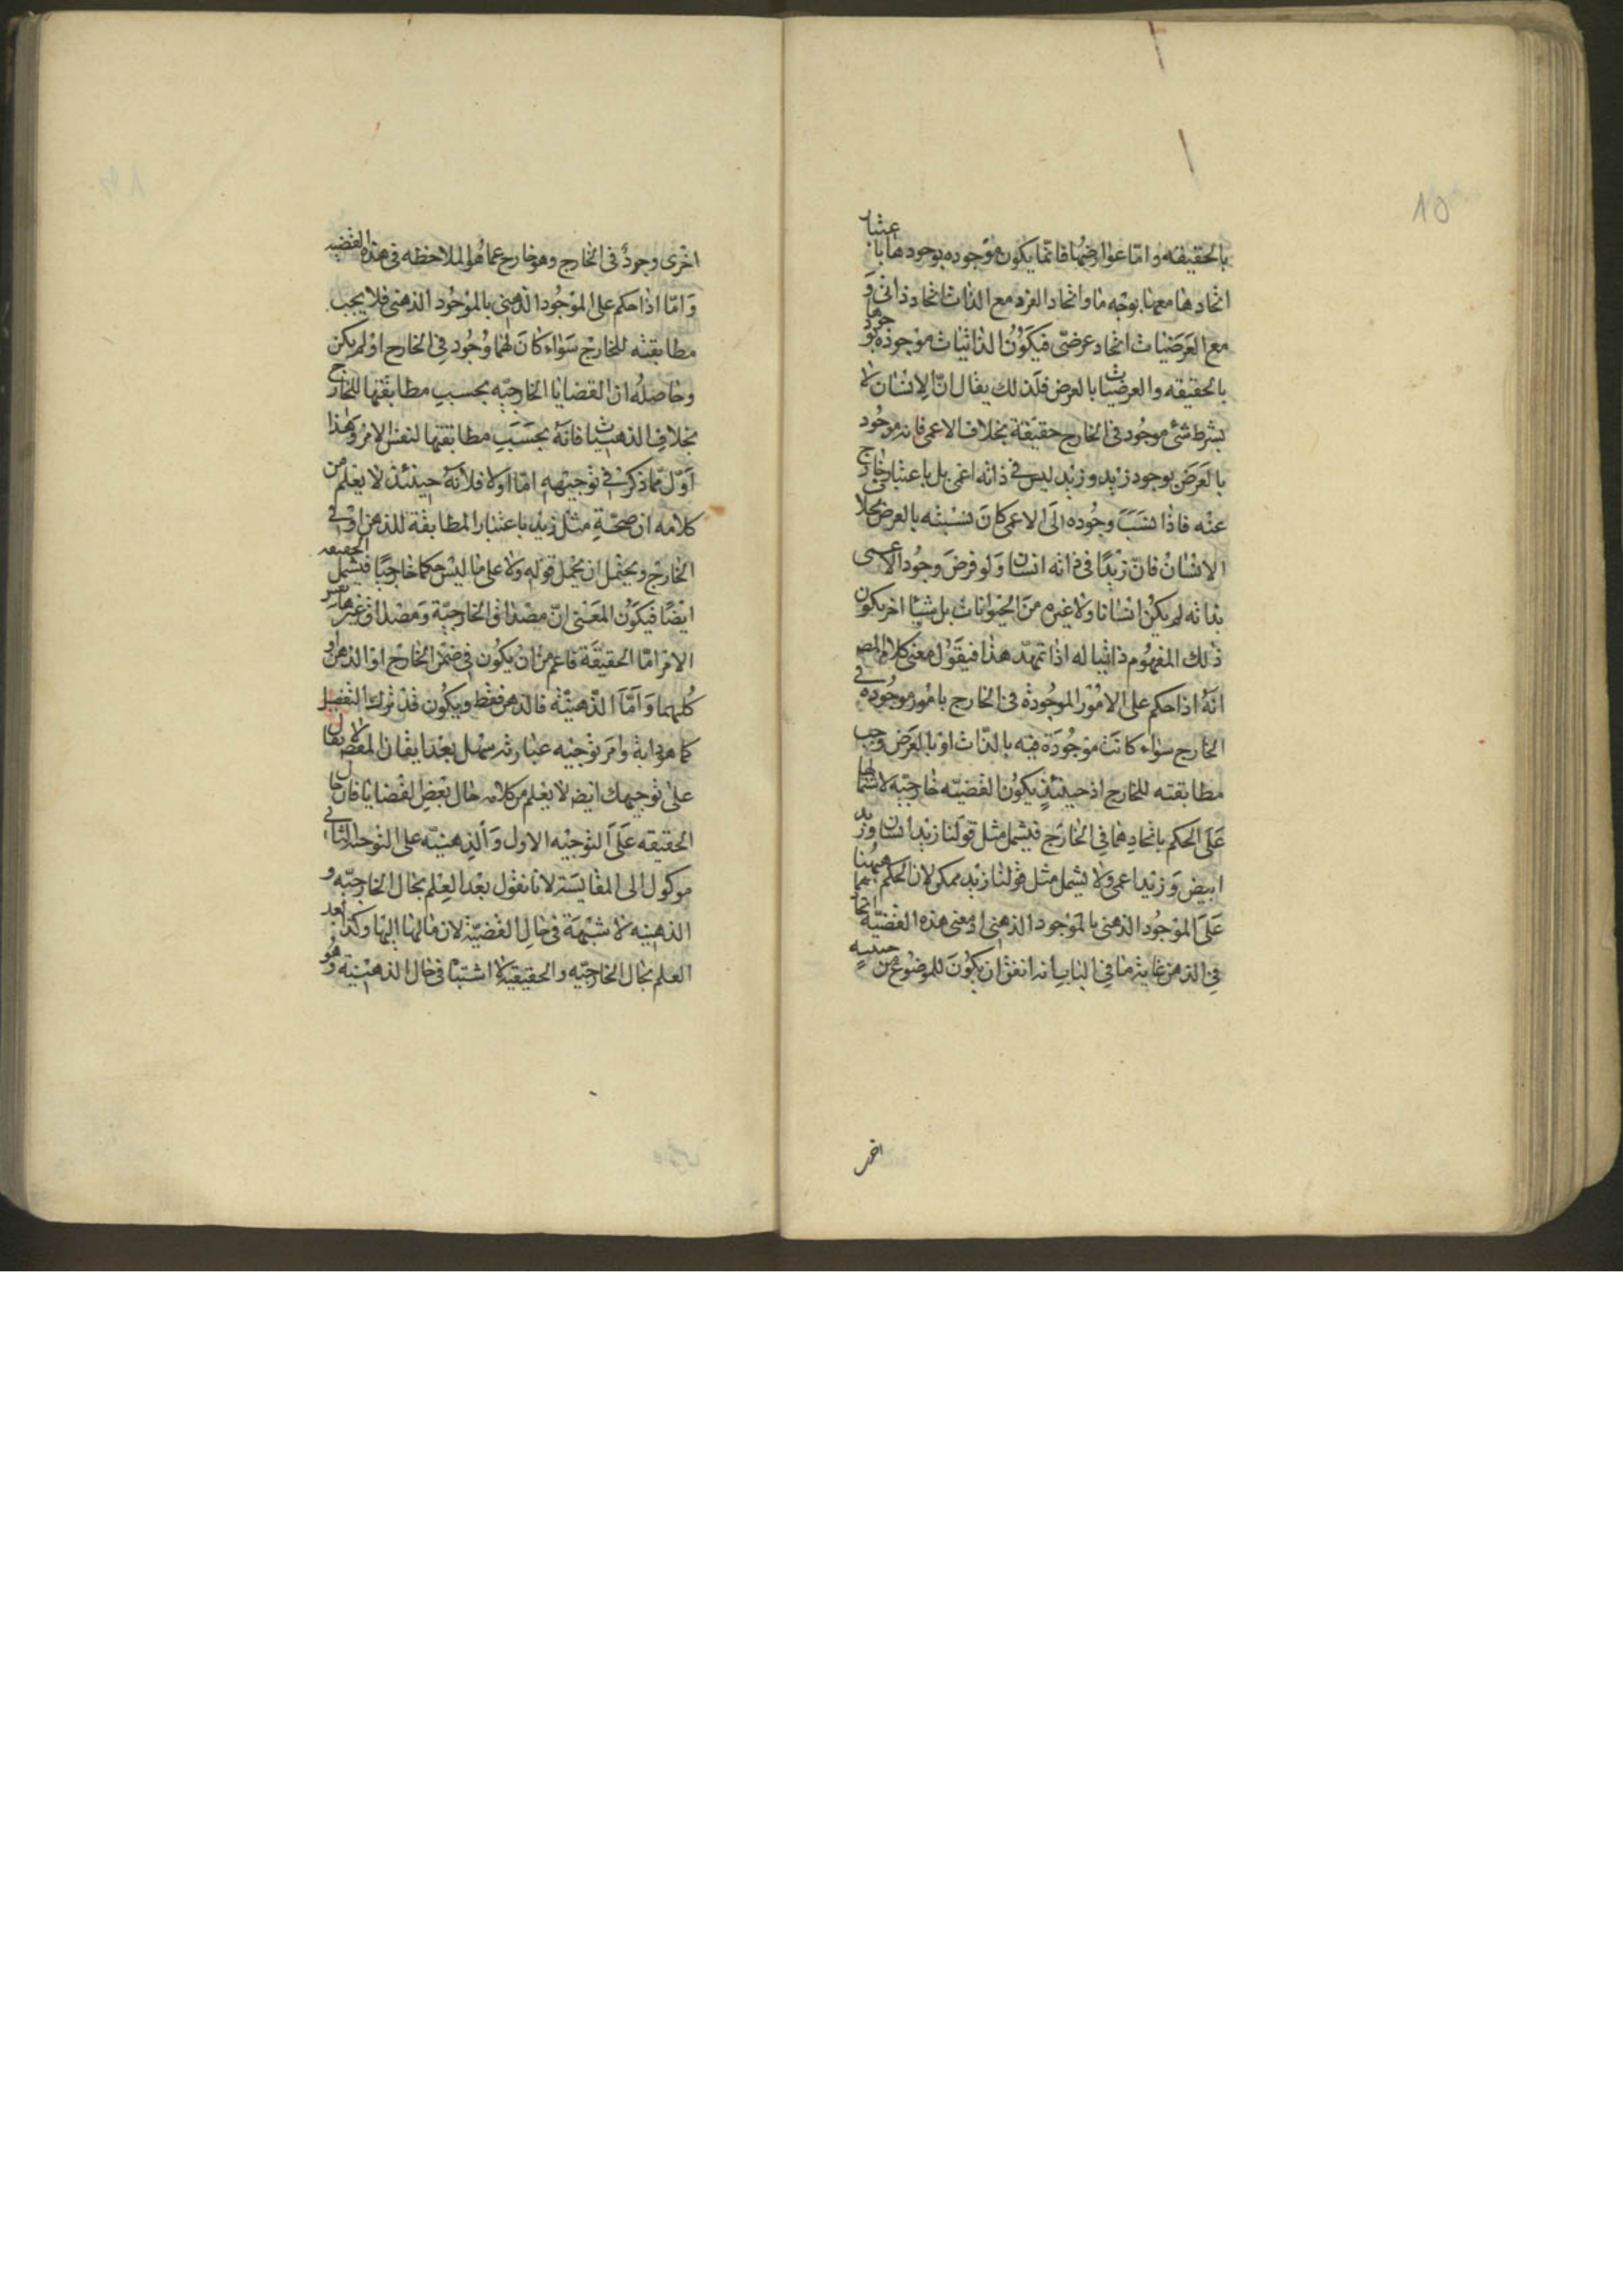 بالحقيقه و امّا عوارضها فانّما يكون موجوده بوجودها باعتبار
اتحادها معها بوجه ما و اتحاد الفرد مع الذات اتحاد ذاتى و
مع العرضيات اتحاد عرضىّ فيكون الذاتيات موجوده بوجودها
بالحقيقه و العرضيات بالعرض فلذلك يقال انّ الانسان لا
بشرط شئ موجود فى الخارج حقيقة بخلاف الاعمى فانه موجود
بالعرض بوجود زيد و زيد ليس فى ذاته اعمى بل باعتبار خارج
عنه فاذا نسب وجوده الى الاعمى كان نسبته بالعرض بخلاف
الانسان فانّ زيدًا فى ذاته انسان و لو فرض وجود الاعمى
بذاته لم يكن انسانا ولا غيره من الحيوانات بل شيئا اخر يكون
ذلك المفهوم ذاتيا له اذا تمهّد هذا فيقول معنى كلام المصـ
انه اذا حكم على الامور الموجودة فى الخارج بامور موجوده فى
الخارج سواء كانت موجودة فيه بالذات او بالعرض وجب
مطابقته للخارج اذ حينئذ يكون القضيّه خارجيّه لاشتمالها
على الحكم باتحادهما فى الخارج فيشمل مثل قولنا زيد انسان و زيد
ابيض و زيد اعمى ولا يشمل مثل قولنا زيد ممكن لان الحكم ههنا
على الموجود الذهنى بالموجود الذهنى اذ معنى هذه القضيّة اتحادهما
فى الذهن غاية ما فى الباب انه اتفق ان يكون للموضوع من حيثيه
اخر
اخرى وجود فى الخارج وهو خارج عما هو الملاحظه فى هذه القضيه
و امّا اذا حكم على الموجود الذهنى بالموجود الذهنى فلا يجب
مطابقته للخارج سواء كان لهما وجود فى الخارج او لم يكن
وحاصله ان القضايا الخارجيّه بحسب مطابقتها للخارج
بخلاف الذهنيات فانه بحسب مطابقتها لنفس الامر وهذا
اوّل مما ذكر فى توجيهه امّا اولا فلانه حينئذ لا يعلم من
كلامه ان صحّة مثل زيد باعتبار المطابقة للذهن او فى
الخارج و يحتمل ان يحمل قوله ولا على ما ليس حكما خارجيّا فيشمل الحقيقه
ايضًا فيكون المعنى انّ مصداق الخارجيّة و مصداق غيرها نفس
الامر امّا الحقيقة فاعم من ان يكون فى ضمن الخارج او الذهن او
كليهما و امّا الذّهنيّة فالذهن فقط و يكون قد ترك التفصيل
كما هو دابه و امر توجيه عبارته سهل بعد ايقان المقصد لا يقال
على توجيهك ايضـ لا يعلم من كلامه حال بعض القضايا فان حال
الحقيقه على التوجيه الاول و الذهنيّه على التوجيه الثانى
موكول الى المقايسة لانا نقول بعد العلم بحال الخارجيّه و
الذهنيه لا شبهة فى حال القضيّة لان مالها اليها وكذا بعد
العلم بحال الخارجيّه و الحقيقية لا اشتباه فى حال الذهنية و هو